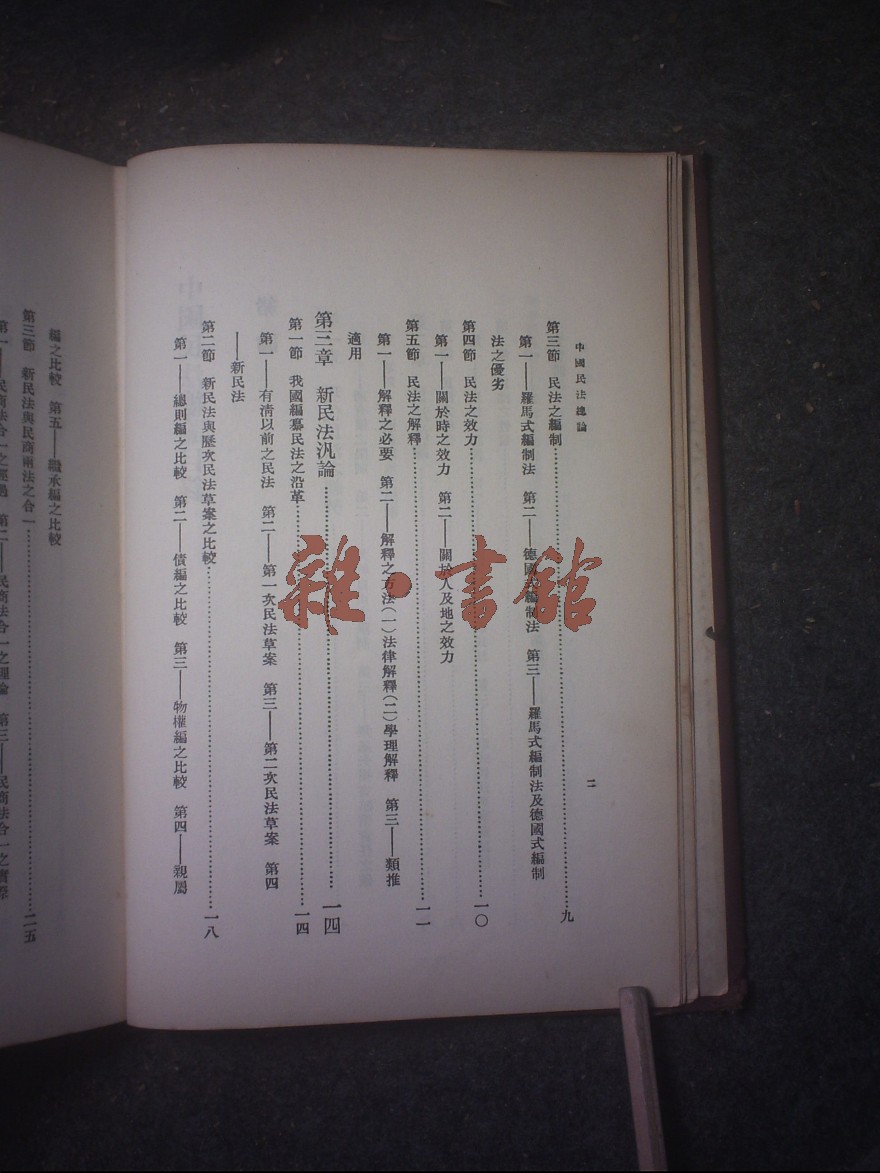 中國民法總論
二
第三節　民法之編制……九
第一——羅馬式編制法　第二——德國式編制法　第三——羅馬式編制法及德國式編制
法之優劣
第四節　民法之效力……一〇
第一——關於時之效力　第二——關於人及地之效力
第五節　民法之解釋……一一
第一——解釋之必要　第二——解釋之方法(一)法律解釋(二)學理解釋　第三——類推
適用
第三章　新民法汎論……一四
第一節　我國編纂民法之沿革……一四
第一——有清以前之民法　第二——第一次民法草案　第三——第二次民法草案　第四
——新民法
第二節　新民法與歷次民法草案之比較……一八
第一——總則編之比較　第二——債編之比較　第三——物權編之比較　第四——親屬
編之比較　第五——繼承編之比較
第三節　新民法與民商兩法之合一……二五
第一——民商法合一之經過　第二——民商法合一之理論　第三——民商法合一之實際
雜·書館